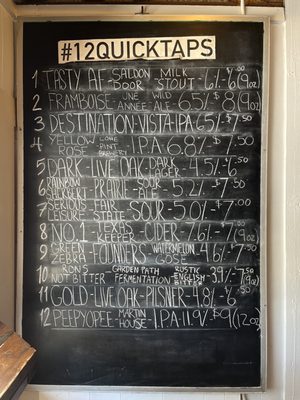 #12QUICKTAPS
1 TASTY AF - SALOON DOOR MILK STOUT - 6.1% - $6 (9oz)
2 FRAMBOISE - UNE ANNÉE WILD ALE - 6.5% $8 (9oz)
3 DESTINATION - VISTA - IPA 6.5% $7.50
4 YELLOW ROSE LONE PINT BREWERY - IPA - 6.8% $7.50
5 DARK - LIVE OAK - DARK LAGER - 4.5% - $6.50
6 RAINBOW SHERBET - PRAIRIE - SOUR ALE - 5.2% - $7.50
7 SERIOUS LEISURE FAIR STATE - SOUR - 5.0% - $7.00
8 NO. 1 - TEXAS KEEPER - CIDER - 7.6% - $7 (9oz)
9 GREEN ZEBRA - FOUNDERS - WATERMELON GOSE 4.6% - $7.50
10 RON'S NOT BITTER - GARDEN PATH FERMENTATION - RUSTIC ENGLISH BITTER - 3.9% - $7.50 (9oz)
11 GOLD - LIVE OAK - PILSNER - 4.8% - $6.50
12 PEEPYOPEE - MARTIN HOUSE - IPA - 11.9% $9 (12oz)